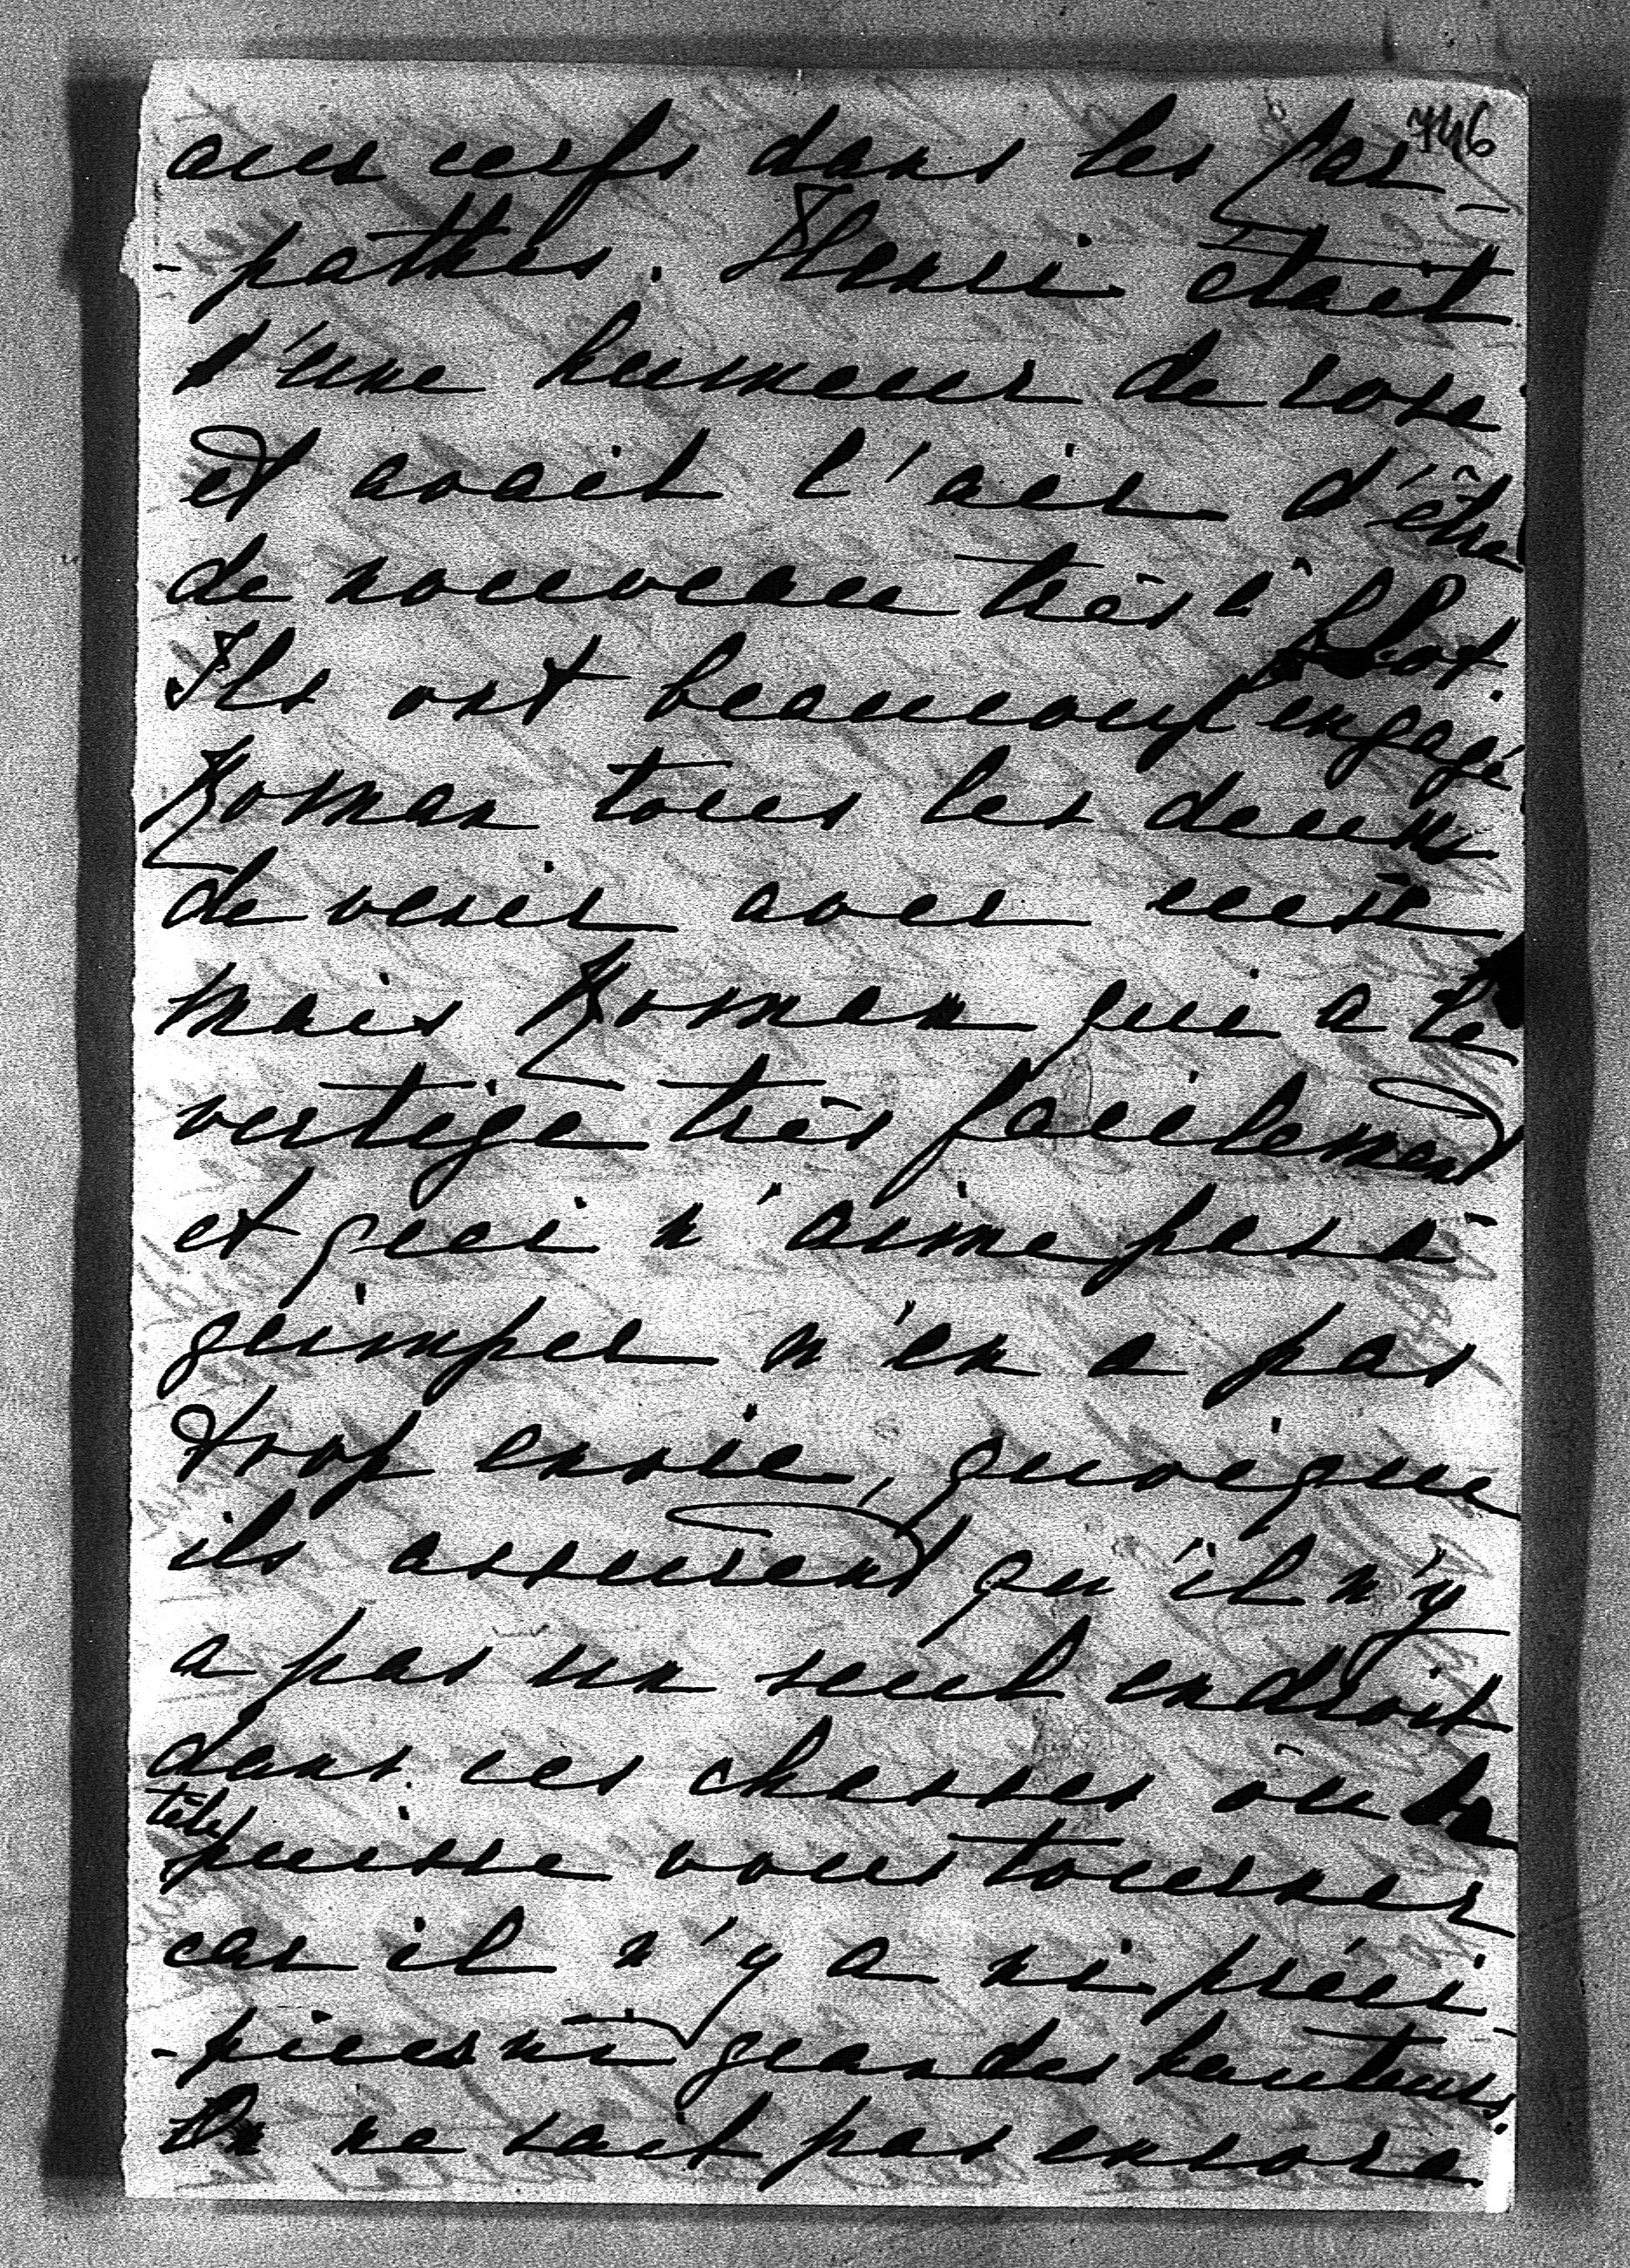 746
aux cerfs dans les Car-
-pathes. Henri était
d'une humeur de rose
et avait l'air d'être
de nouveau très à flot.
Ils ont beaucoup engagé
Roman tous les deux
de venir avec eux
mais Roman qui a le
vertige très facilement
et qui n'aime pas à
grimper n'en a pas
trop envie, quoique
ils assurent qu'il n'y
a pas un seul endroit
dans ces chasses où la
tête puisse vous tourner
car il n'y a ni préci
-pices ni grandes hauteurs.
On ne sait pas encore